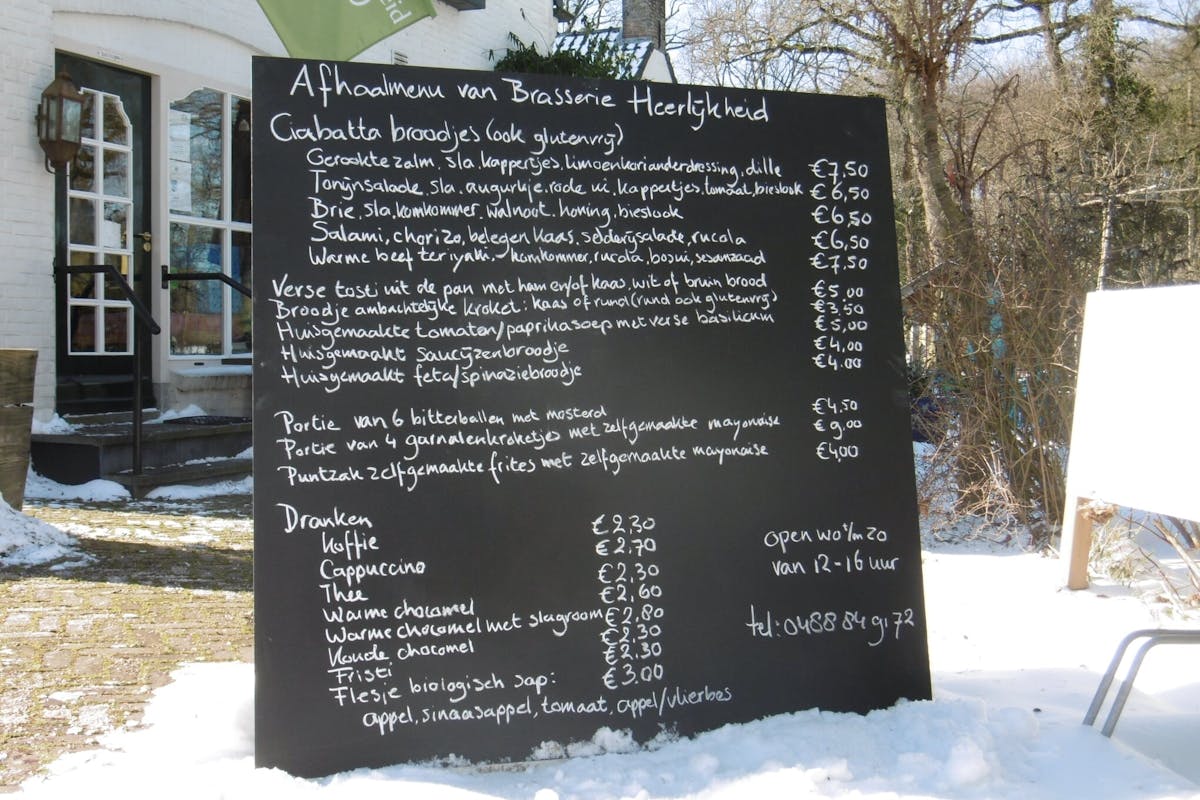 eid
Afhaalmenu van Brasserie Heerlijkheid
Ciabatta broodjes (ook glutenvrij)
Gerookte zalm, sla, kappertjes, limoenkorianderdressing, dille €7,50
Tonijnsalade, sla, augurkje, rode ui, kappertjes, tomaat, bieslook €6,50
Brie, sla, komkommer, walnoot, honing, bieslook €6,50
Salami, chorizo, belegen kaas, selderijsalade, rucola €6,50
Warme beef teriyaki, komkommer, rucola, bosui, sesamzaad €7,50
Verse tosti uit de pan met ham en/of kaas, wit of bruin brood €5,00
Broodje ambachtelijke kroket: kaas of rund (rund ook glutenvrij) €3,50
Huisgemaakte tomaten/paprikasoep met verse basilicum €5,00
Huisgemaakt saucijzenbroodje €4,00
Huisgemaakt feta/spinaziebroodje €4,00
Portie van 6 bitterballen met mosterd €4,50
Portie van 4 garnalenkroketjes met zelfgemaakte mayonaise €9,00
Puntzak zelfgemaakte frites met zelfgemaakte mayonaise €4,00
Dranken
Koffie €2,30
Cappuccino €2,70
Thee €2,30
Warme chocomel €2,60
Warme chocomel met slagroom €2,80
Koude chocomel €2,30
Fristi €2,30
Flesje biologisch sap: €3,00
appel, sinaasappel, tomaat, appel/vlierbes
open wo t/m zo
van 12-16 uur
tel: 0488 84 91 72